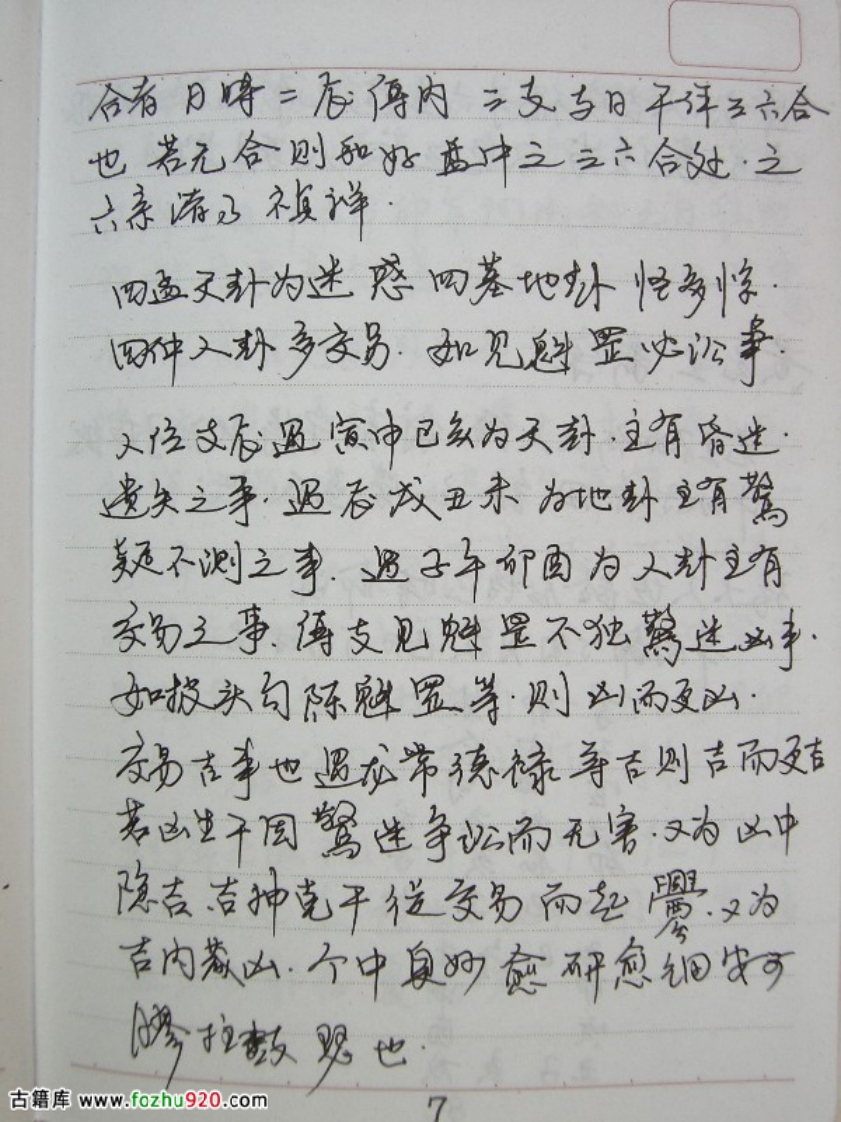 合者日時二辰傳内三支与日干作三六合
也 若无合则和好盖中之三六合处.之
六亲 禎祥.
四孟天卦为迷惑 四墓地卦怪多惊.
四仲人卦多交易. 如见魁罡必讼事.
人位支辰遇寅申巳亥为天卦.主有昏迷.
遗失之事.遇辰戌丑未为地卦主有驚
疑不测之事.遇子午卯酉为人卦主有
交易之事.傳支见魁罡不独驚迷凶事.
如披头勾陈魁罡等.则凶而更凶.
交易吉事也遇龙常德禄等吉则吉而更吉
若凶生干因驚迷争讼而无害.又为凶中
隐吉.吉神克干从交易而起 .又为
吉内藏凶.个中 妙愈研愈细安可
膠柱鼓瑟也.
7
古籍库 www.fozhu920.com